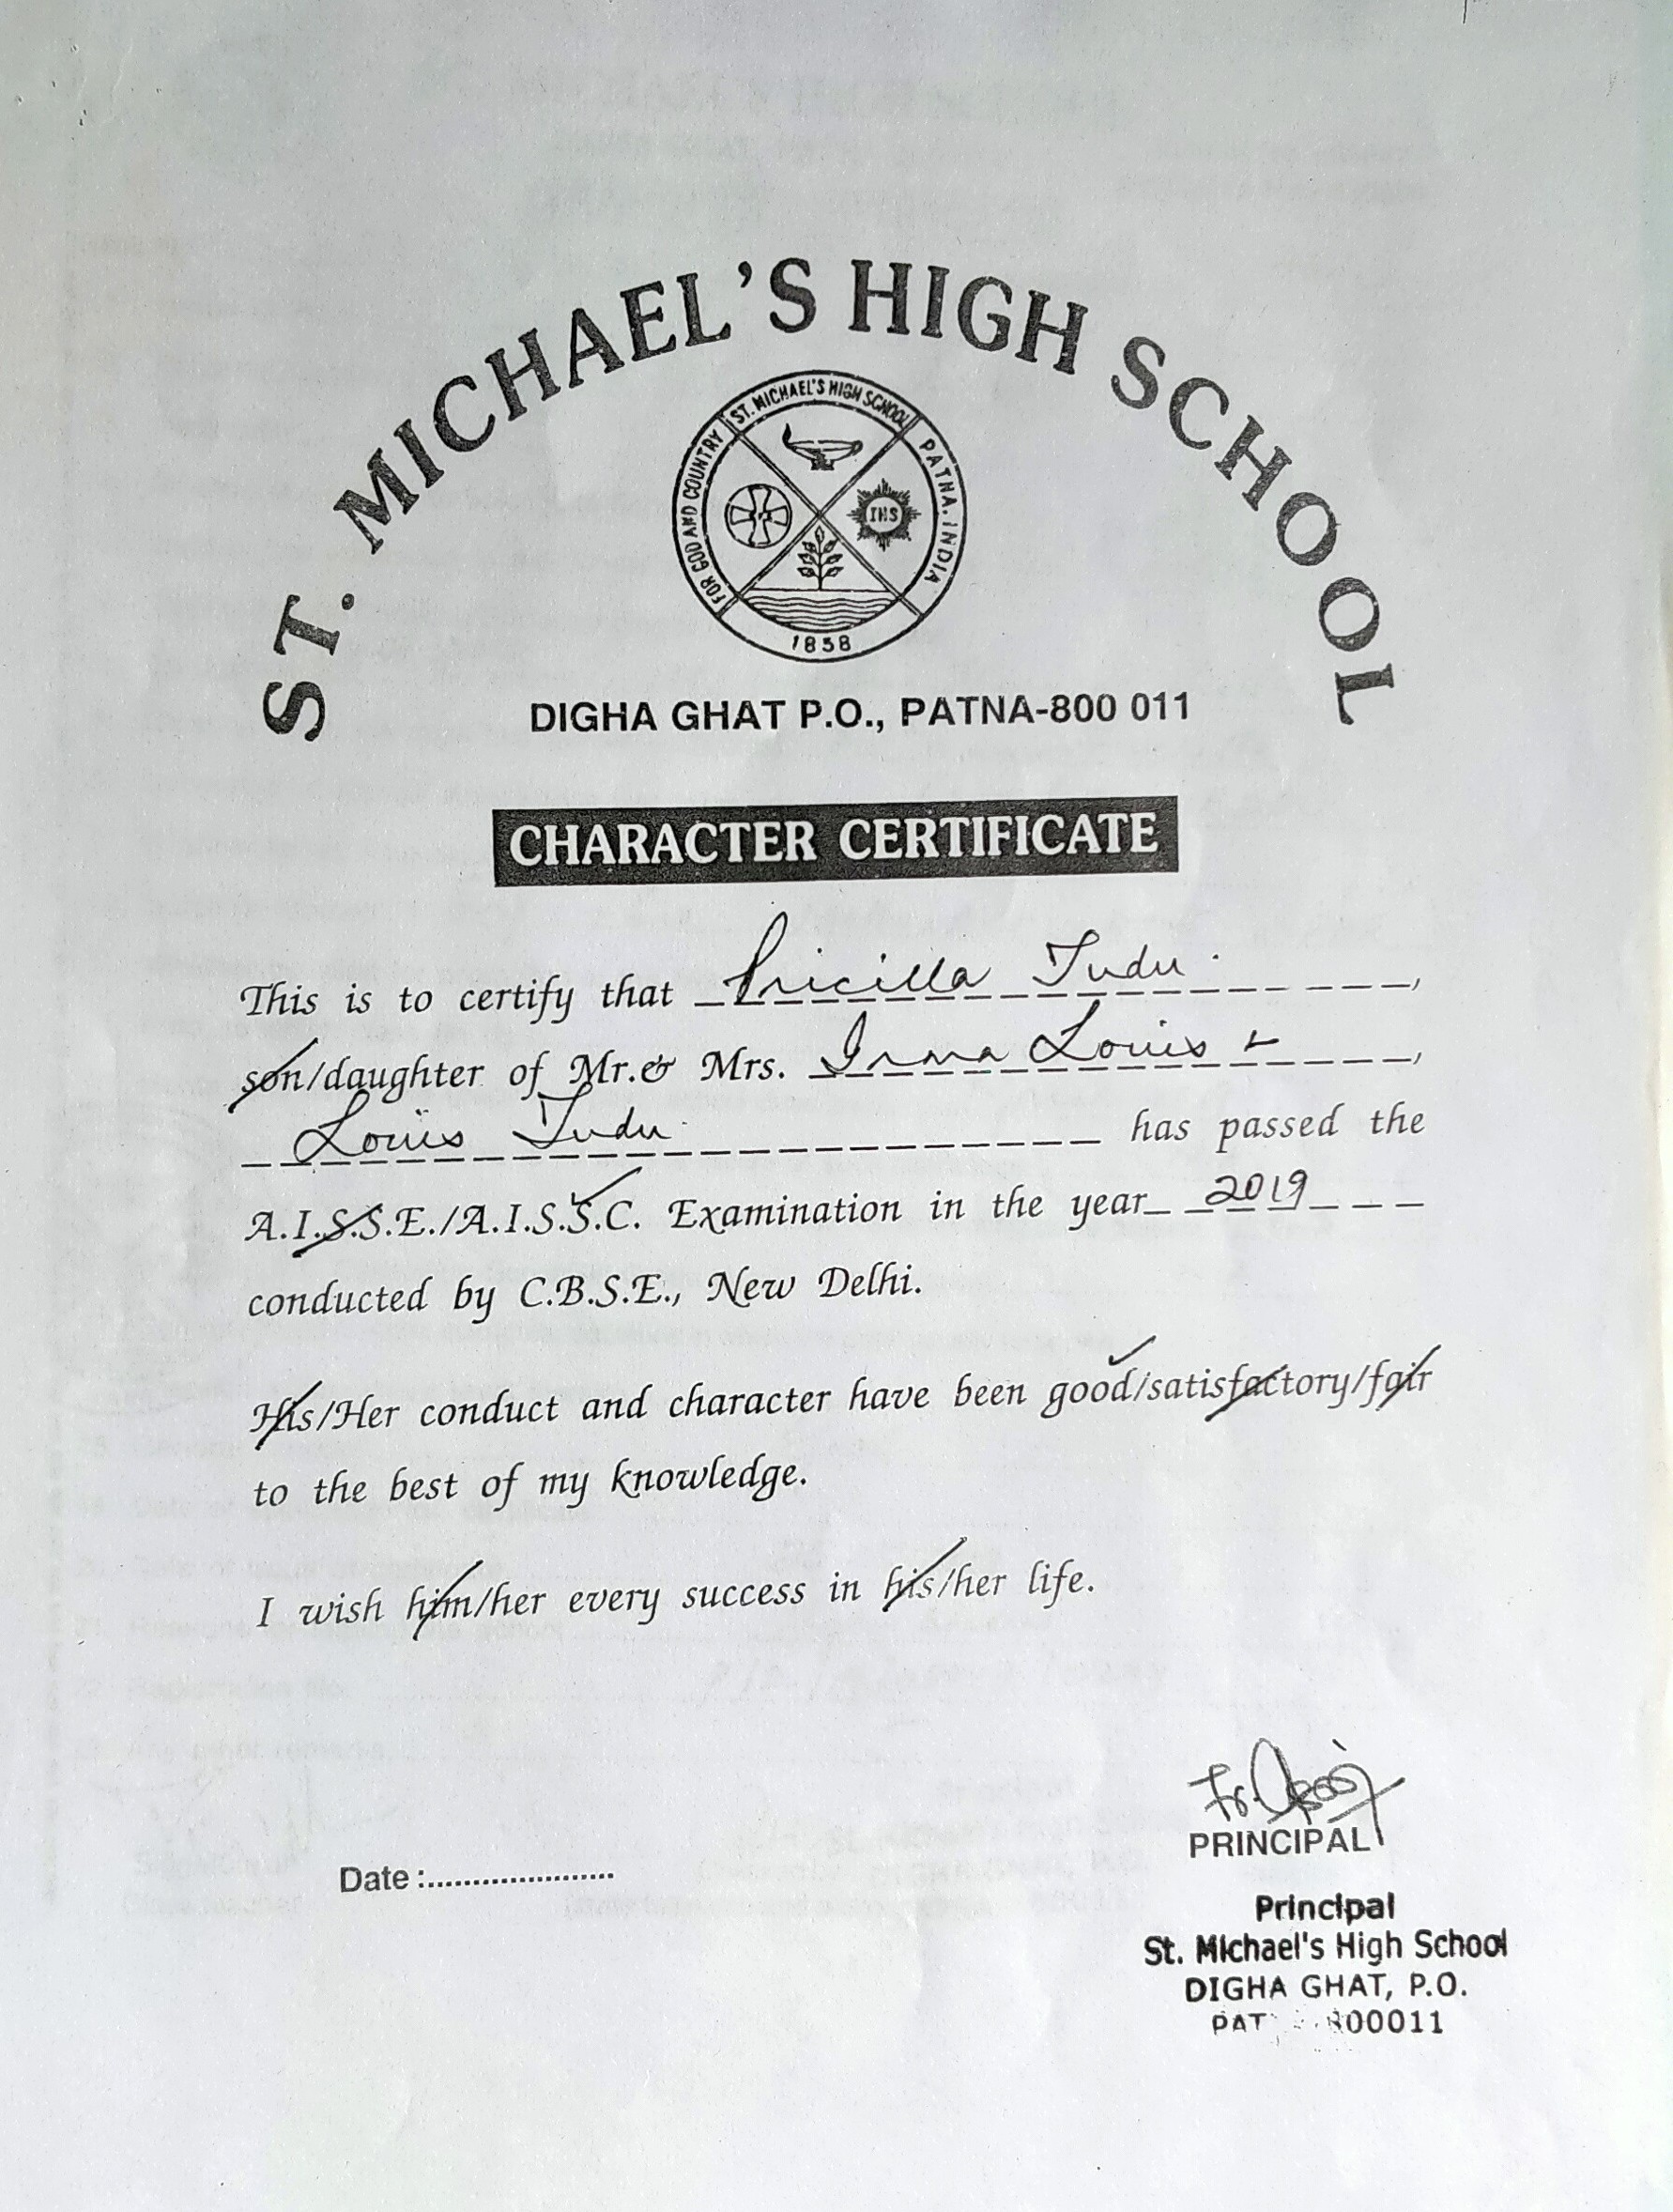 ST. MICHAEL'S HIGH SCHOOL
ST. MICHAEL'S HIGH SCHOOL
FOR GOD AND COUNTRY
PATNA. INDIA
IHS
1858
DIGHA GHAT P.O., PATNA-800 011
CHARACTER CERTIFICATE
This is to certify that Pricilla Tudu.,
son/daughter of Mr.& Mrs. Irma Louis &,
Louis Tudu. has passed the
A.I.S.S.E./A.I.S.S.C. Examination in the year 2019
conducted by C.B.S.E., New Delhi.
His/Her conduct and character have been good/satisfactory/fair
to the best of my knowledge.
I wish him/her every success in his/her life.
Fr.
PRINCIPAL
Date :......................
Principal
St. Michael's High School
DIGHA GHAT, P.O.
800011